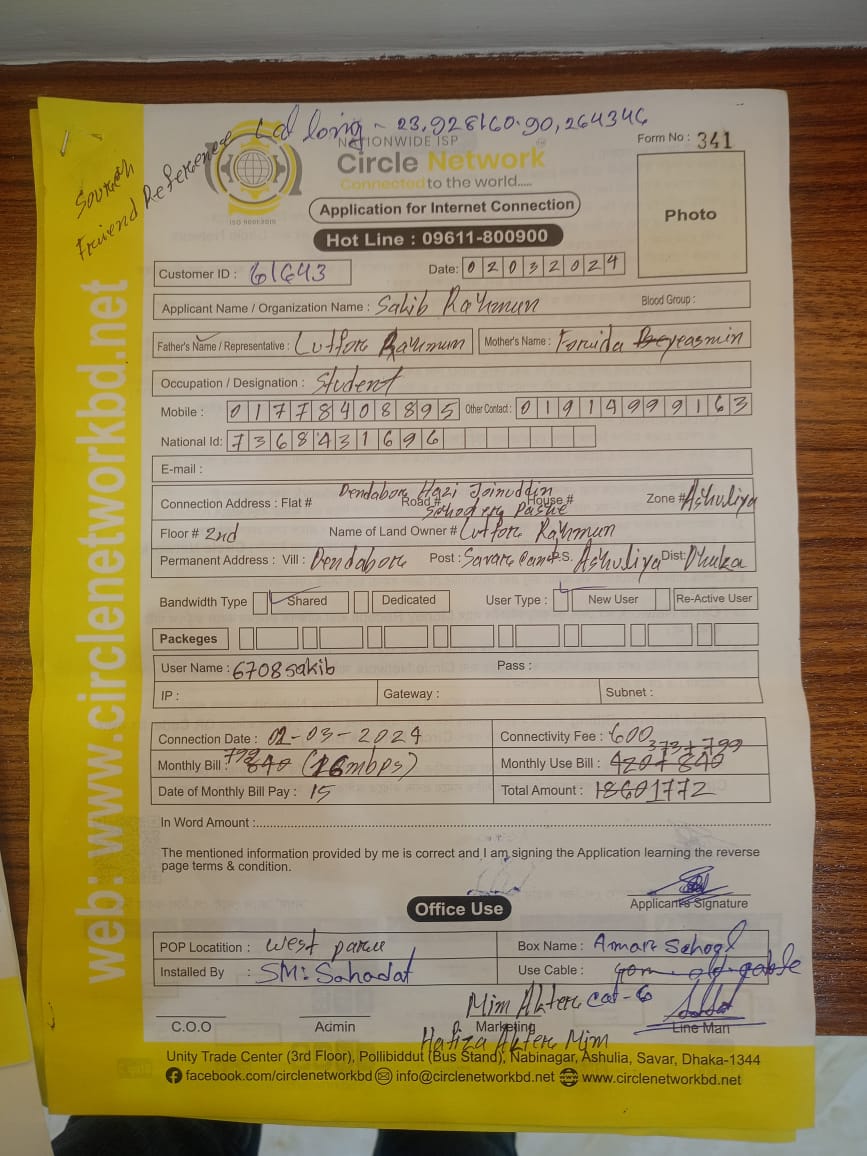 Lat long - 23.928160.90,264346
Form No : 341
Friend Reference
NATIONWIDE ISP
Circle Network
Connected to the world.....
ISO 9001:2015
Application for Internet Connection
Photo
Hot Line : 09611-800900
Customer ID : 61643 Date: 02032024
Applicant Name / Organization Name : Sakib Rahmun Blood Group :
Father's Name / Representative : Lutfor Rahmun Mother's Name : Forida Beyeasmin
Occupation / Designation : Student
Mobile : 01778408895 Other Contact : 01914999163
National Id: 7368431696
E-mail :
Dendabor Hazi Joinuddin
Connection Address : Flat # Road # House # Zone # Ashuliya
Pashe
Floor # 2nd Name of Land Owner # Lutfor Rahmun
Permanent Address : Vill : Dendabore Post : Savar Cant P.S. Ashuliya Dist: Dhaka
Bandwidth Type Shared Dedicated User Type : New User Re-Active User
Packeges
User Name : 6708sakib Pass :
IP : Gateway : Subnet :
Connection Date : 02-03-2024 Connectivity Fee : 600
799 373+799
Monthly Bill : 840 (16mbps) Monthly Use Bill : 420+840
Date of Monthly Bill Pay : 15 Total Amount : 1860 1772
In Word Amount :
The mentioned information provided by me is correct and I am signing the Application learning the reverse
page terms & condition.
Applicants Signature
Office Use
POP Locatition : West Box Name : Amar School
Installed By : SM: Sahadat Use Cable : old cable
Mim Akter cat-6
C.O.O Admin Marketing Line Man
Hafiza Akter Mim
Unity Trade Center (3rd Floor), Pollibiddut (Bus Stand), Nabinagar, Ashulia, Savar, Dhaka-1344
facebook.com/circlenetworkbd info@circlenetworkbd.net www.circlenetworkbd.net
web: www.circlenetworkbd.net